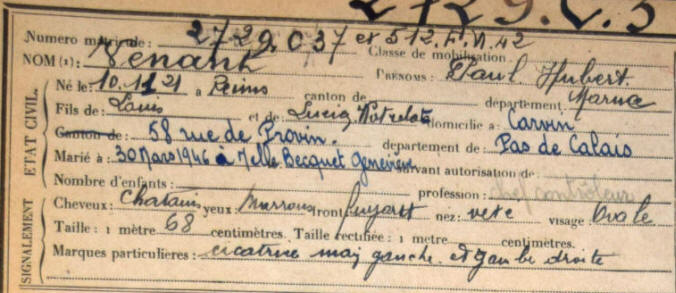 2729.C.3
Numero matricule : 2729.037 et 512.F.N.42
Classe de mobilisation
NOM (1) : Venant PRÉNOMS : Paul Hubert
ETAT CIVIL.
Né le : 10.11 21 a Reims canton de departement : Marne
Fils de : Louis et de Lucia domicilie a : Carvin
Canton de : 58 rue de Provin. departement de : Pas de Calais
Marié à : 30 Mars 1946 à Melle Becquet Geneviève suivant autorisation de :
Nombre d'enfants : profession : chef contrôleur
SIGNALEMENT
Cheveux : Chatains yeux : Marrons front fuyant nez : visage Ovale
Taille : 1 mètre 68 centimètres. Taille rectifiée : 1 metre centimètres.
Marques particulières : cicatrice main gauche et jambe droite